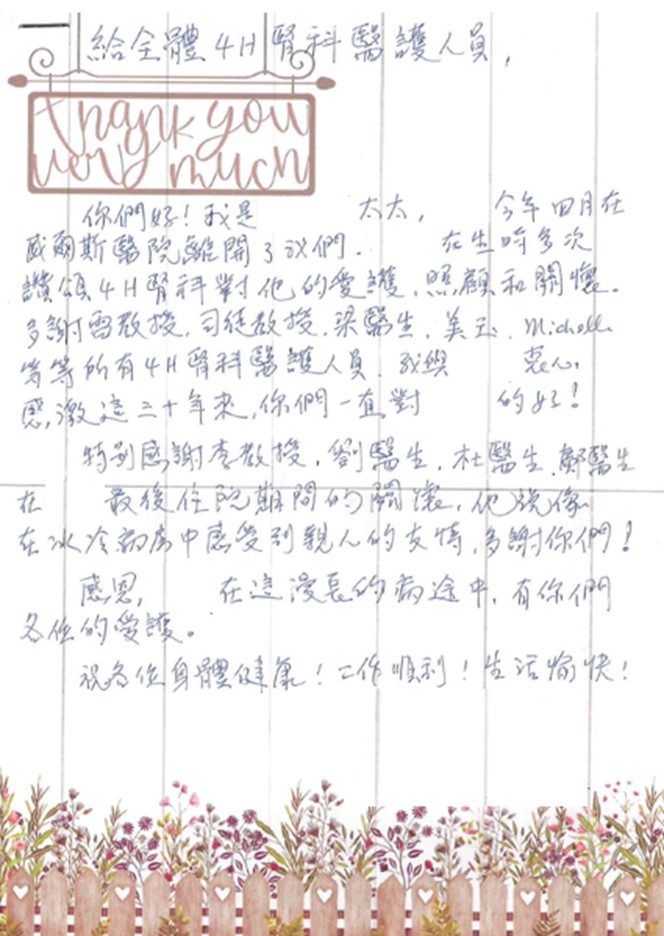 給全體4H腎科醫護人員,
thank you
very much
你們好!我是 太太, 今年四月在
威爾斯醫院離開了我們. 在生時多次
讚頌4H腎科對他的愛護、照顧和關懷。
多謝雷教授、司徒教授、梁醫生、美玉、Michelle
等等所有4H腎科醫護人員. 我與 衷心
感激這二十年來,你們一直對 的好!
特別感謝李教授、劉醫生、杜醫生、鄭醫生
在 最後住院期間的關懷,他說像
在冰冷病房中感受到親人的友情,多謝你們!
感恩, 在這漫長的病途中,有你們
各位的愛護。
祝各位身體健康!工作順利!生活愉快!